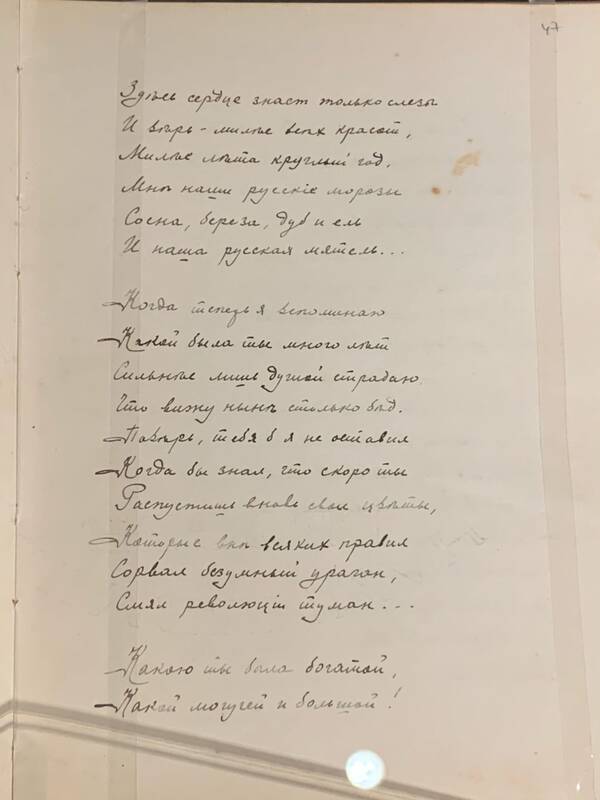 47
Здѣсь сердце знает только слезы
И вѣрь - милѣе всѣх красот,
Милѣе лѣта круглый год,
Мнѣ наши русскіе морозы
Сосна, береза, дуб и ель
И наша русская мятель...
Когда теперь я вспоминаю
Какой была ты много лѣт
Сильнѣе лишь душой страдаю
Что вижу нынѣ столько бѣд.
Повѣрь, тебя б я не оставил
Когда бы знал, что скоро ты
Распустишь вновь свои цвѣты,
Которые внѣ всяких правил
Сорвал безумный ураган,
Смял революціи туман...
Какою ты была богатой,
Какой могучей и большой!